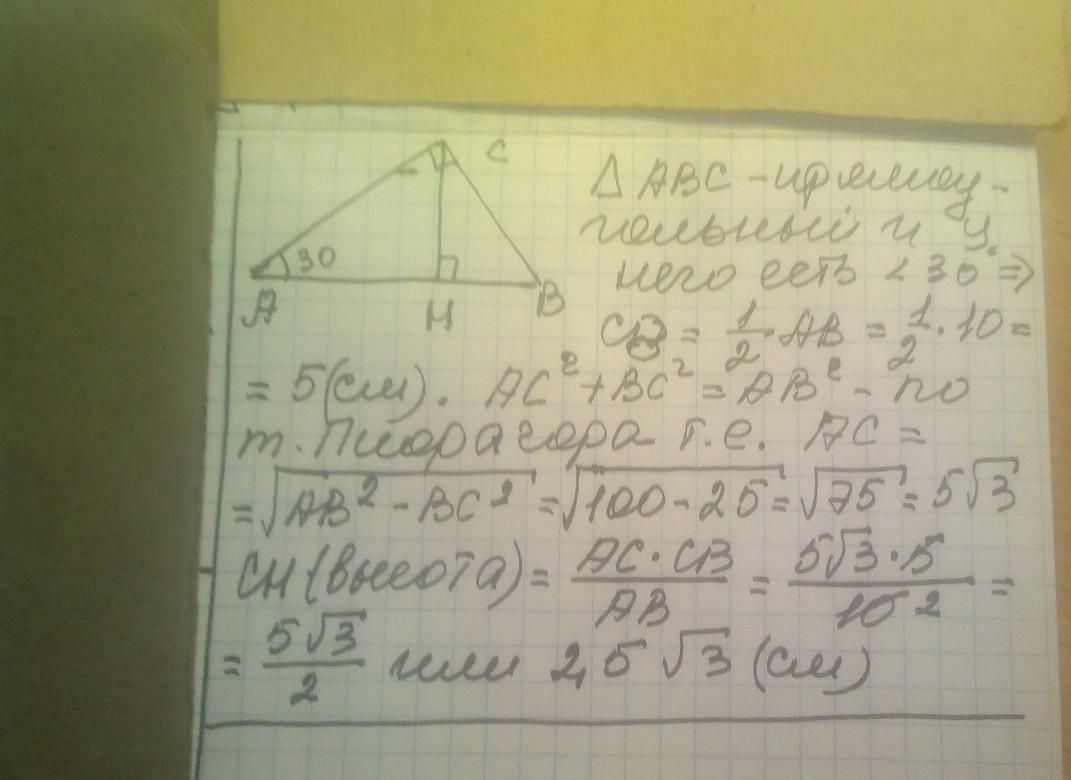 C
30
A
H
B
Δ ABC - прямоу-
гольный и у
него есть <30° ⇒
CB = 1/2 AB = 1/2 · 10 =
= 5(см). AC² + BC² = AB² - по
т. Пифрагора т.е. AC =
= √(AB² - BC²) = √(100 - 25) = √75 = 5√3
CH (высота) = AC · CB / AB = 5√3 · 5 / 10 2 =
= 5√3 / 2 или 2,5√3 (см)